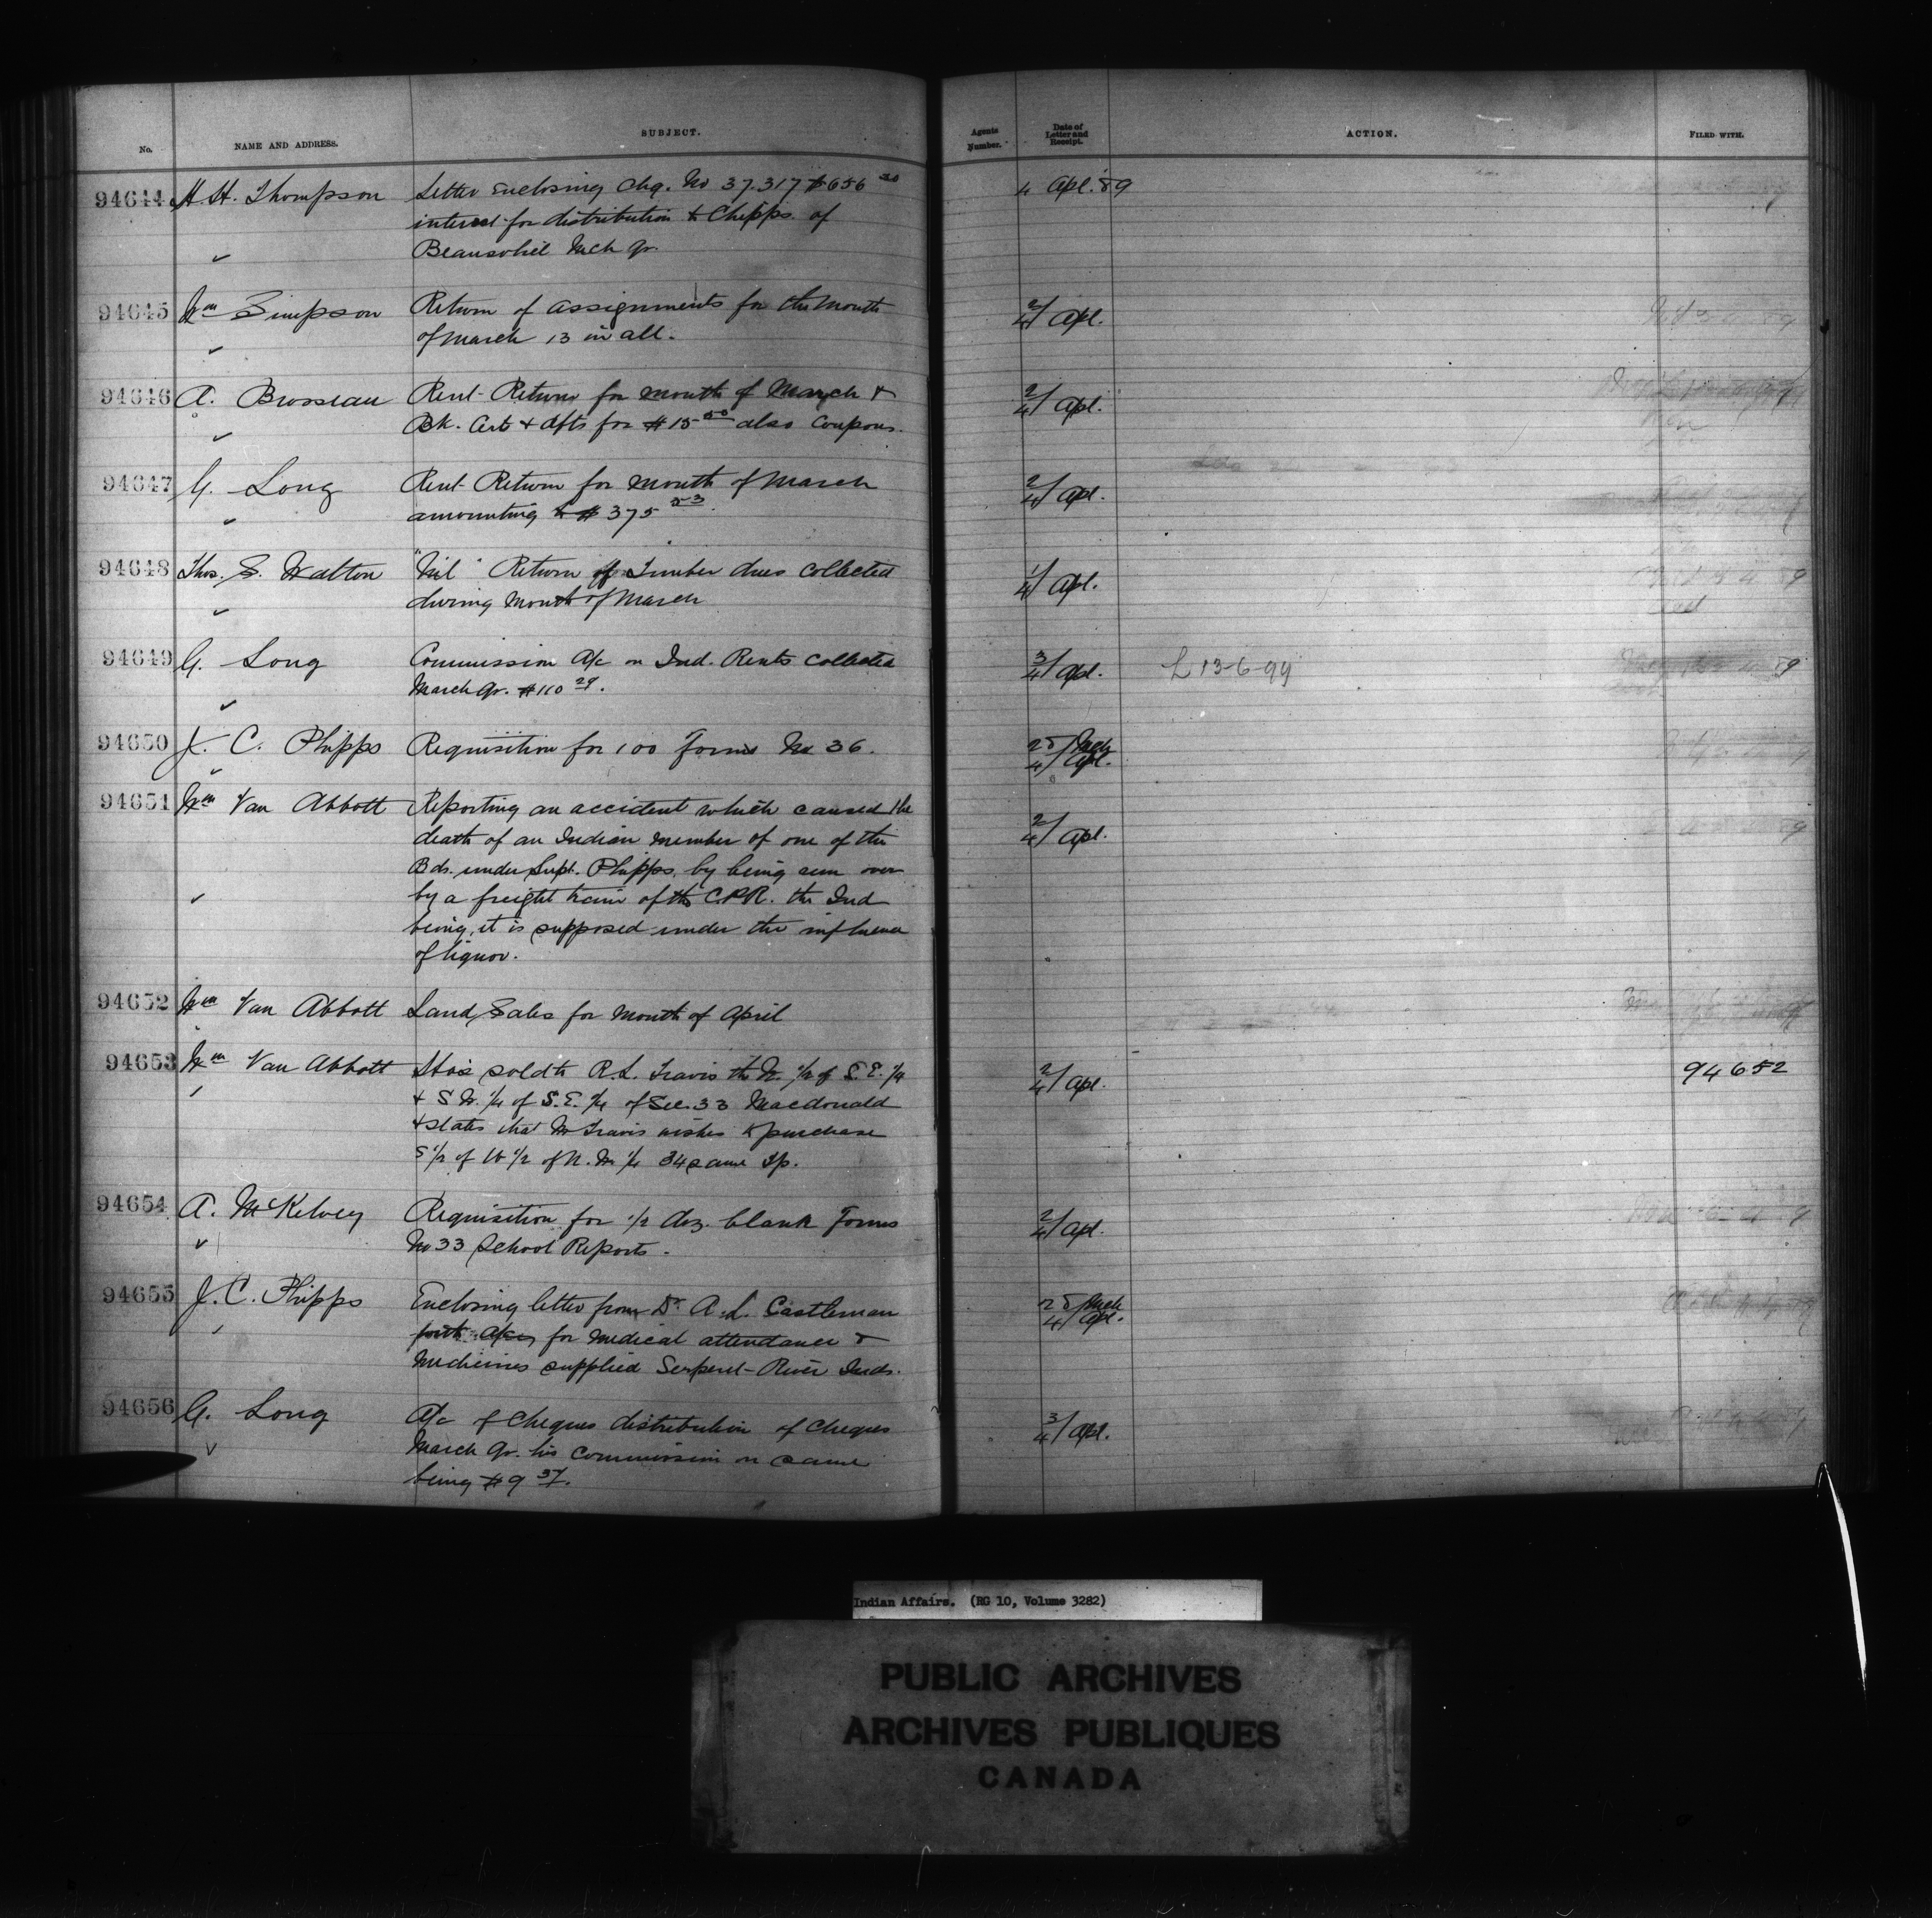 No.
NAME AND ADDRESS.
SUBJECT.
Agents Number.
Date of Letter and Receipt.
ACTION.
FILED WITH.
94644 H. H. Thompson Letter enclosing chq. No 37.317 $656 20 4 Apl. 89
interest for distribution to Chipps. of
Beausoliel Mch qr.
94645 Wm Simpson Return of assignments for the month 2/4 Apl.
of March 13 in all.
94646 A. Brosseau Rent Return for month of March & 2/4 Apl.
Bk. Certs & dfts for $15 50 also Coupons.
94647 G. Long Rent Return for month of March 2/4 Apl.
amounting to $375 53.
94648 Thos. S. Walton "Nil" Return of Timber dues collected 1/4 Apl.
during month of March
94649 G. Long Commission A/c on Ind. Rents collected 3/4 Apl. L 13-6-99
March qr. $110 29.
94650 J. C. Phipps Requisition for 100 forms No 36. 28/4 Mch Apl.
94651 Wm Van Abbott Reporting an accident which caused the
death of an Indian member of one of the 2/4 Apl.
Bds. under Supt. Phipps, by being run over
by a freight train of the C.P.R. the Ind
being, it is supposed under the influence
of liquor.
94652 Wm Van Abbott Land Sales for month of April
94653 Wm Van Abbott Has sold to R. L. Travis the N. 1/2 of S. E. 1/4 2/4 Apl. 94652
& S. W. 1/4 of S. E. 1/4 of Sec. 33 Macdonald
& states that Mr Travis wishes to purchase
S 1/2 of W 1/2 of N. W 1/4 34 same Tp.
94654 A. McKelvey Requisition for 1/2 doz. blank Forms 2/4 Apl.
No 33 School Reports.
94655 J. C. Phipps Enclosing letter from Dr A. L. Castleman 28/4 Mch Apl.
for medical attendance &
Medicines supplied Serpent River Inds.
94656 G. Long A/c of Cheques distribution of cheques 3/4 Apl.
March qr. his commission on same
being $9 37.
Indian Affairs. (RG 10, Volume 3282)
PUBLIC ARCHIVES
ARCHIVES PUBLIQUES
CANADA